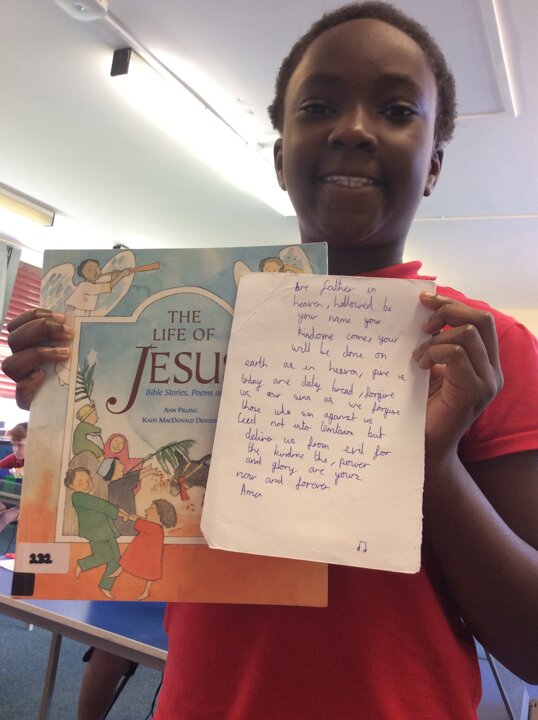 THE
LIFE OF
JESUS
Bible Stories, Poems a
ANN PILLING
KADY MACDONALD DENTO
232
are father in
heaven, hallowed be
your name your
kindome come, your
will be done on
earth as in heaven, give us
today are daly bread, forgive
us our sins as we forgive
those who sin against us
leed not into temtaion but
deliver us from evil for
the kindme the, power
and glory are yours
now and forever
Amen